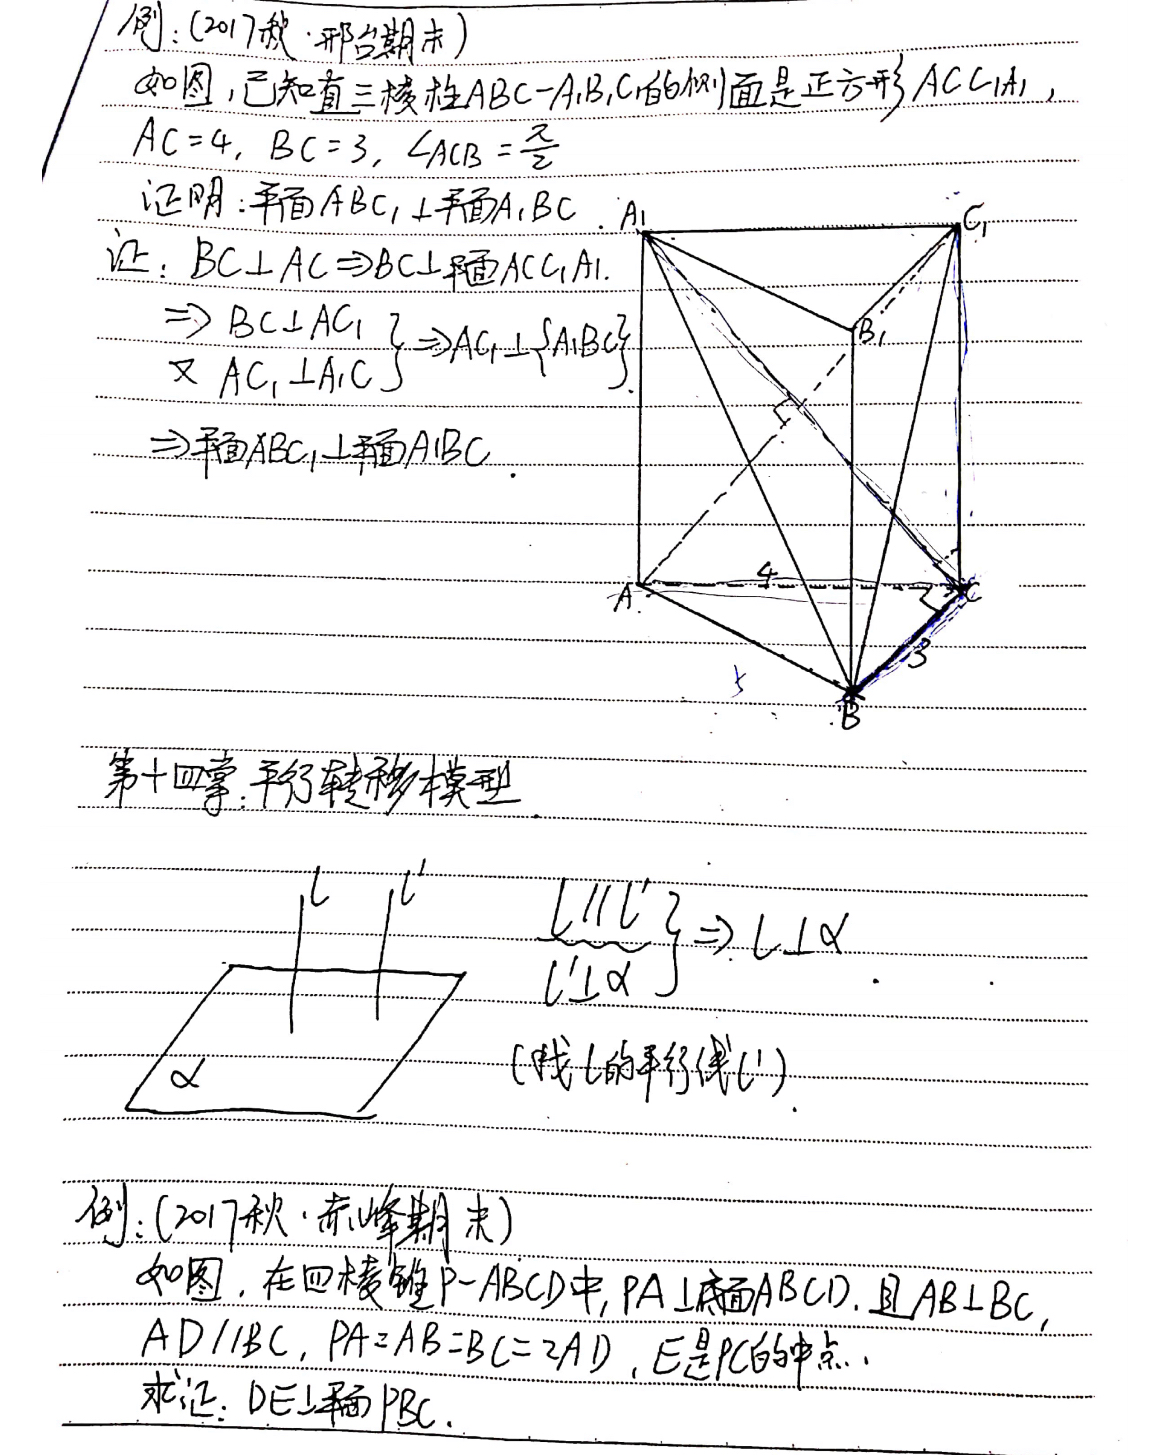 例:(2017秋·邢台期末)
如图,已知直三棱柱ABC-A₁B₁C₁的侧面是正方形ACC₁A₁,
AC=4, BC=3, ∠ACB=π/2
证明:平面ABC₁⊥平面A₁BC
A₁
C₁
证: BC⊥AC⇒BC⊥平面ACC₁A₁.
⇒ BC⊥AC₁
又 AC₁⊥A₁C } ⇒AC₁⊥{A₁BC}.
B₁
⇒平面ABC₁⊥平面A₁BC.
4
A
C
3
5
B
第十四章:平行转移模型.
l l'
l∥l'
l'⊥α } ⇒ l⊥α
α
(找l的平行线l')
例:(2017秋·赤峰期末)
如图,在四棱锥P-ABCD中,PA⊥底面ABCD.且AB⊥BC,
AD∥BC, PA=AB=BC=2AD, E是PC的中点.
求证: DE⊥平面PBC.